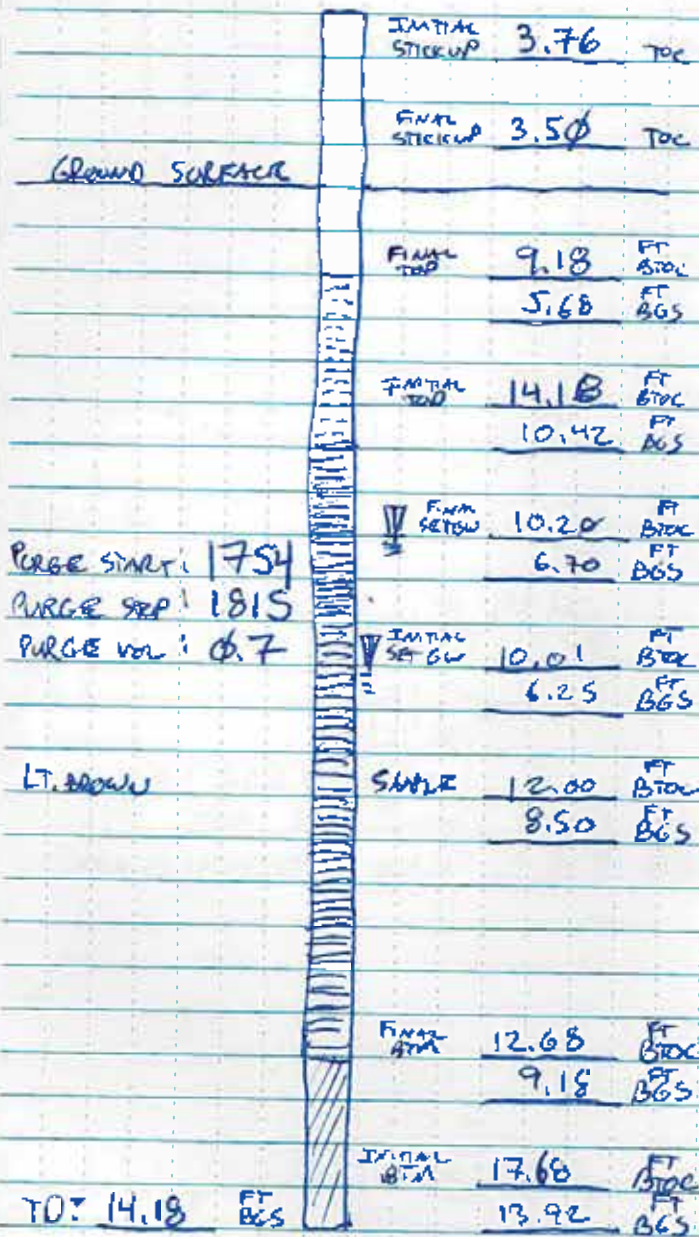 INITIAL
STICKUP 3.76 TOC
FINAL
STICKUP 3.5Ø TOC
GROUND SURFACE
FINAL
TOP 9.18 FT
BTOC
5.68 FT
BGS
INITIAL
TOP 14.18 FT
BTOC
10.42 FT
BGS
FINAL
SET GW 10.20 FT
BTOC
6.70 FT
BGS
PURGE START: 1754
PURGE STP: 1815
PURGE VOL: Ø.7
INITIAL
SET GW 10.01 FT
BTOC
6.25 FT
BGS
LT. BROWN
SAMPLE 12.00 FT
BTOC
8.50 FT
BGS
FINAL
BTM 12.68 FT
BTOC
9.18 FT
BGS
INITIAL
BTM 17.68 FT
BTOC
13.92 FT
BGS
TD: 14.18 FT
BGS